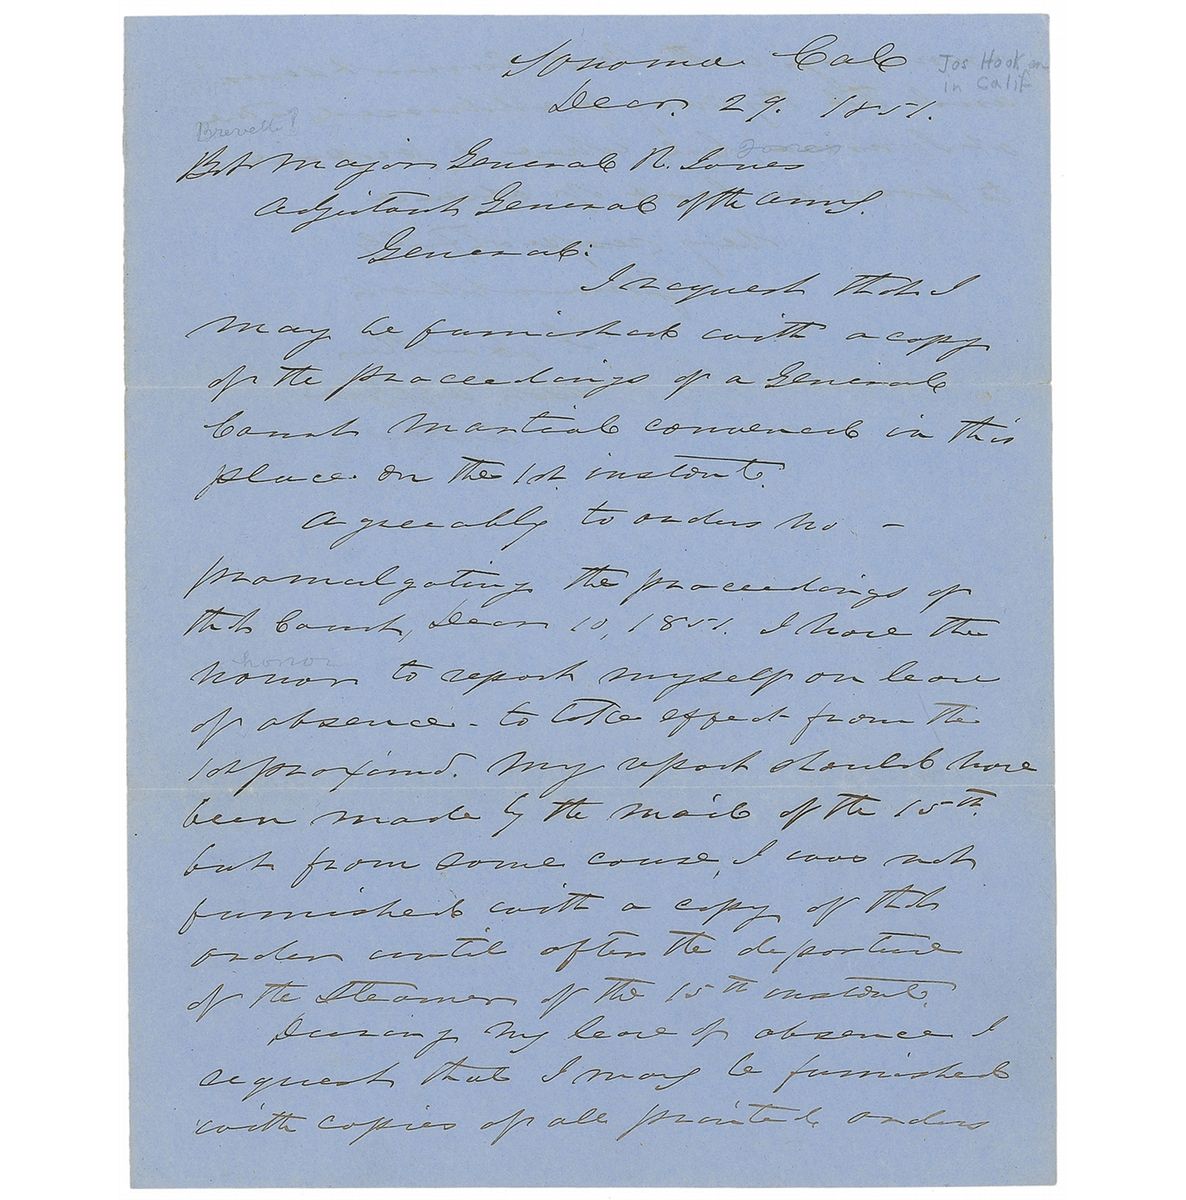 Sonoma Cal
Jos Hook
in Calif
Decr. 29. 1851.
Brevett?
Bvt Major General R. Jones
Jones
Adjutant General of the Army.
General.
I request that I
may be furnished with a copy
of the proceedings of a General
Court Martial convened in this
place on the 1st. instant.
Agreeably to orders No –
promulgating the proceedings of
that Court, Decr 10, 1851. I have the
honor
honor to report myself on leave
of absence - to take effect from the
1st proximo. My report should have
been made by the mail of the 15th.
but from some cause, I was not
furnished with a copy of that
order until after the departure
of the Steamer of the 15th instant.
During my leave of absence I
request that I may be furnished
with copies of all printed orders